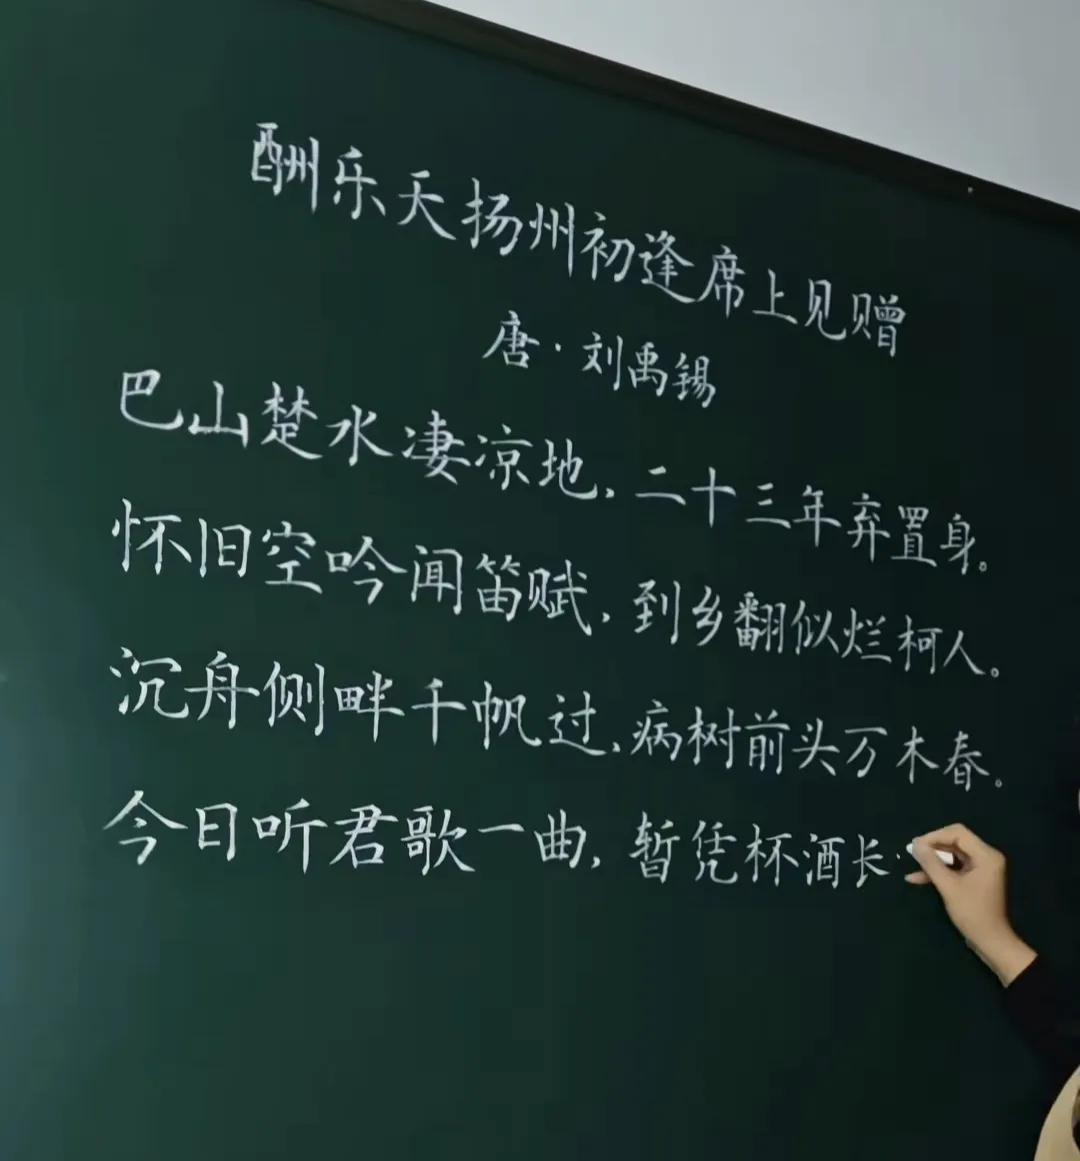 酬乐天扬州初逢席上见赠
唐·刘禹锡
巴山楚水凄凉地，二十三年弃置身。
怀旧空吟闻笛赋，到乡翻似烂柯人。
沉舟侧畔千帆过，病树前头万木春。
今日听君歌一曲，暂凭杯酒长